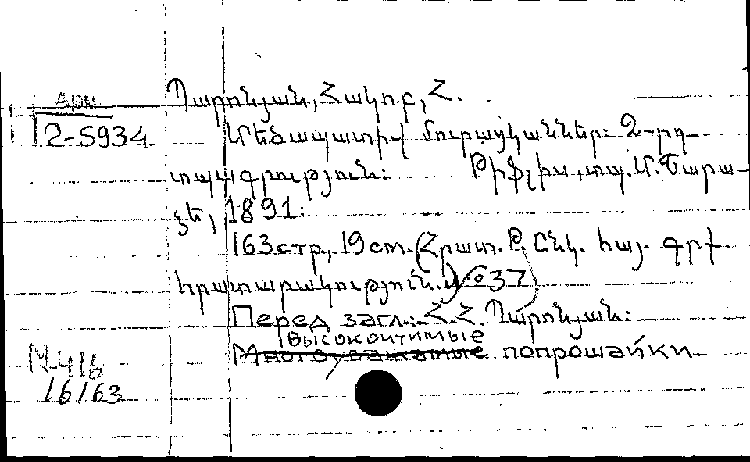 Арм.
Պարոնյան, Հակոբ, Հ.
12-5934
Մեծապատիվ մուրացկաններ: 2-րդ
տպագրություն: Թիֆլիս, տպ. Մ. Շարա-
ձե, 1891:
163 стр., 19 cm. (Հրատ. Թ. Ընկ. հայ. գրե.
հրատարակություն. № 37)
Перед загл.: Հ. Հ. Պարոնյան:
Высокочтимые
Многоуважаемые попрошайки
М-416
16163